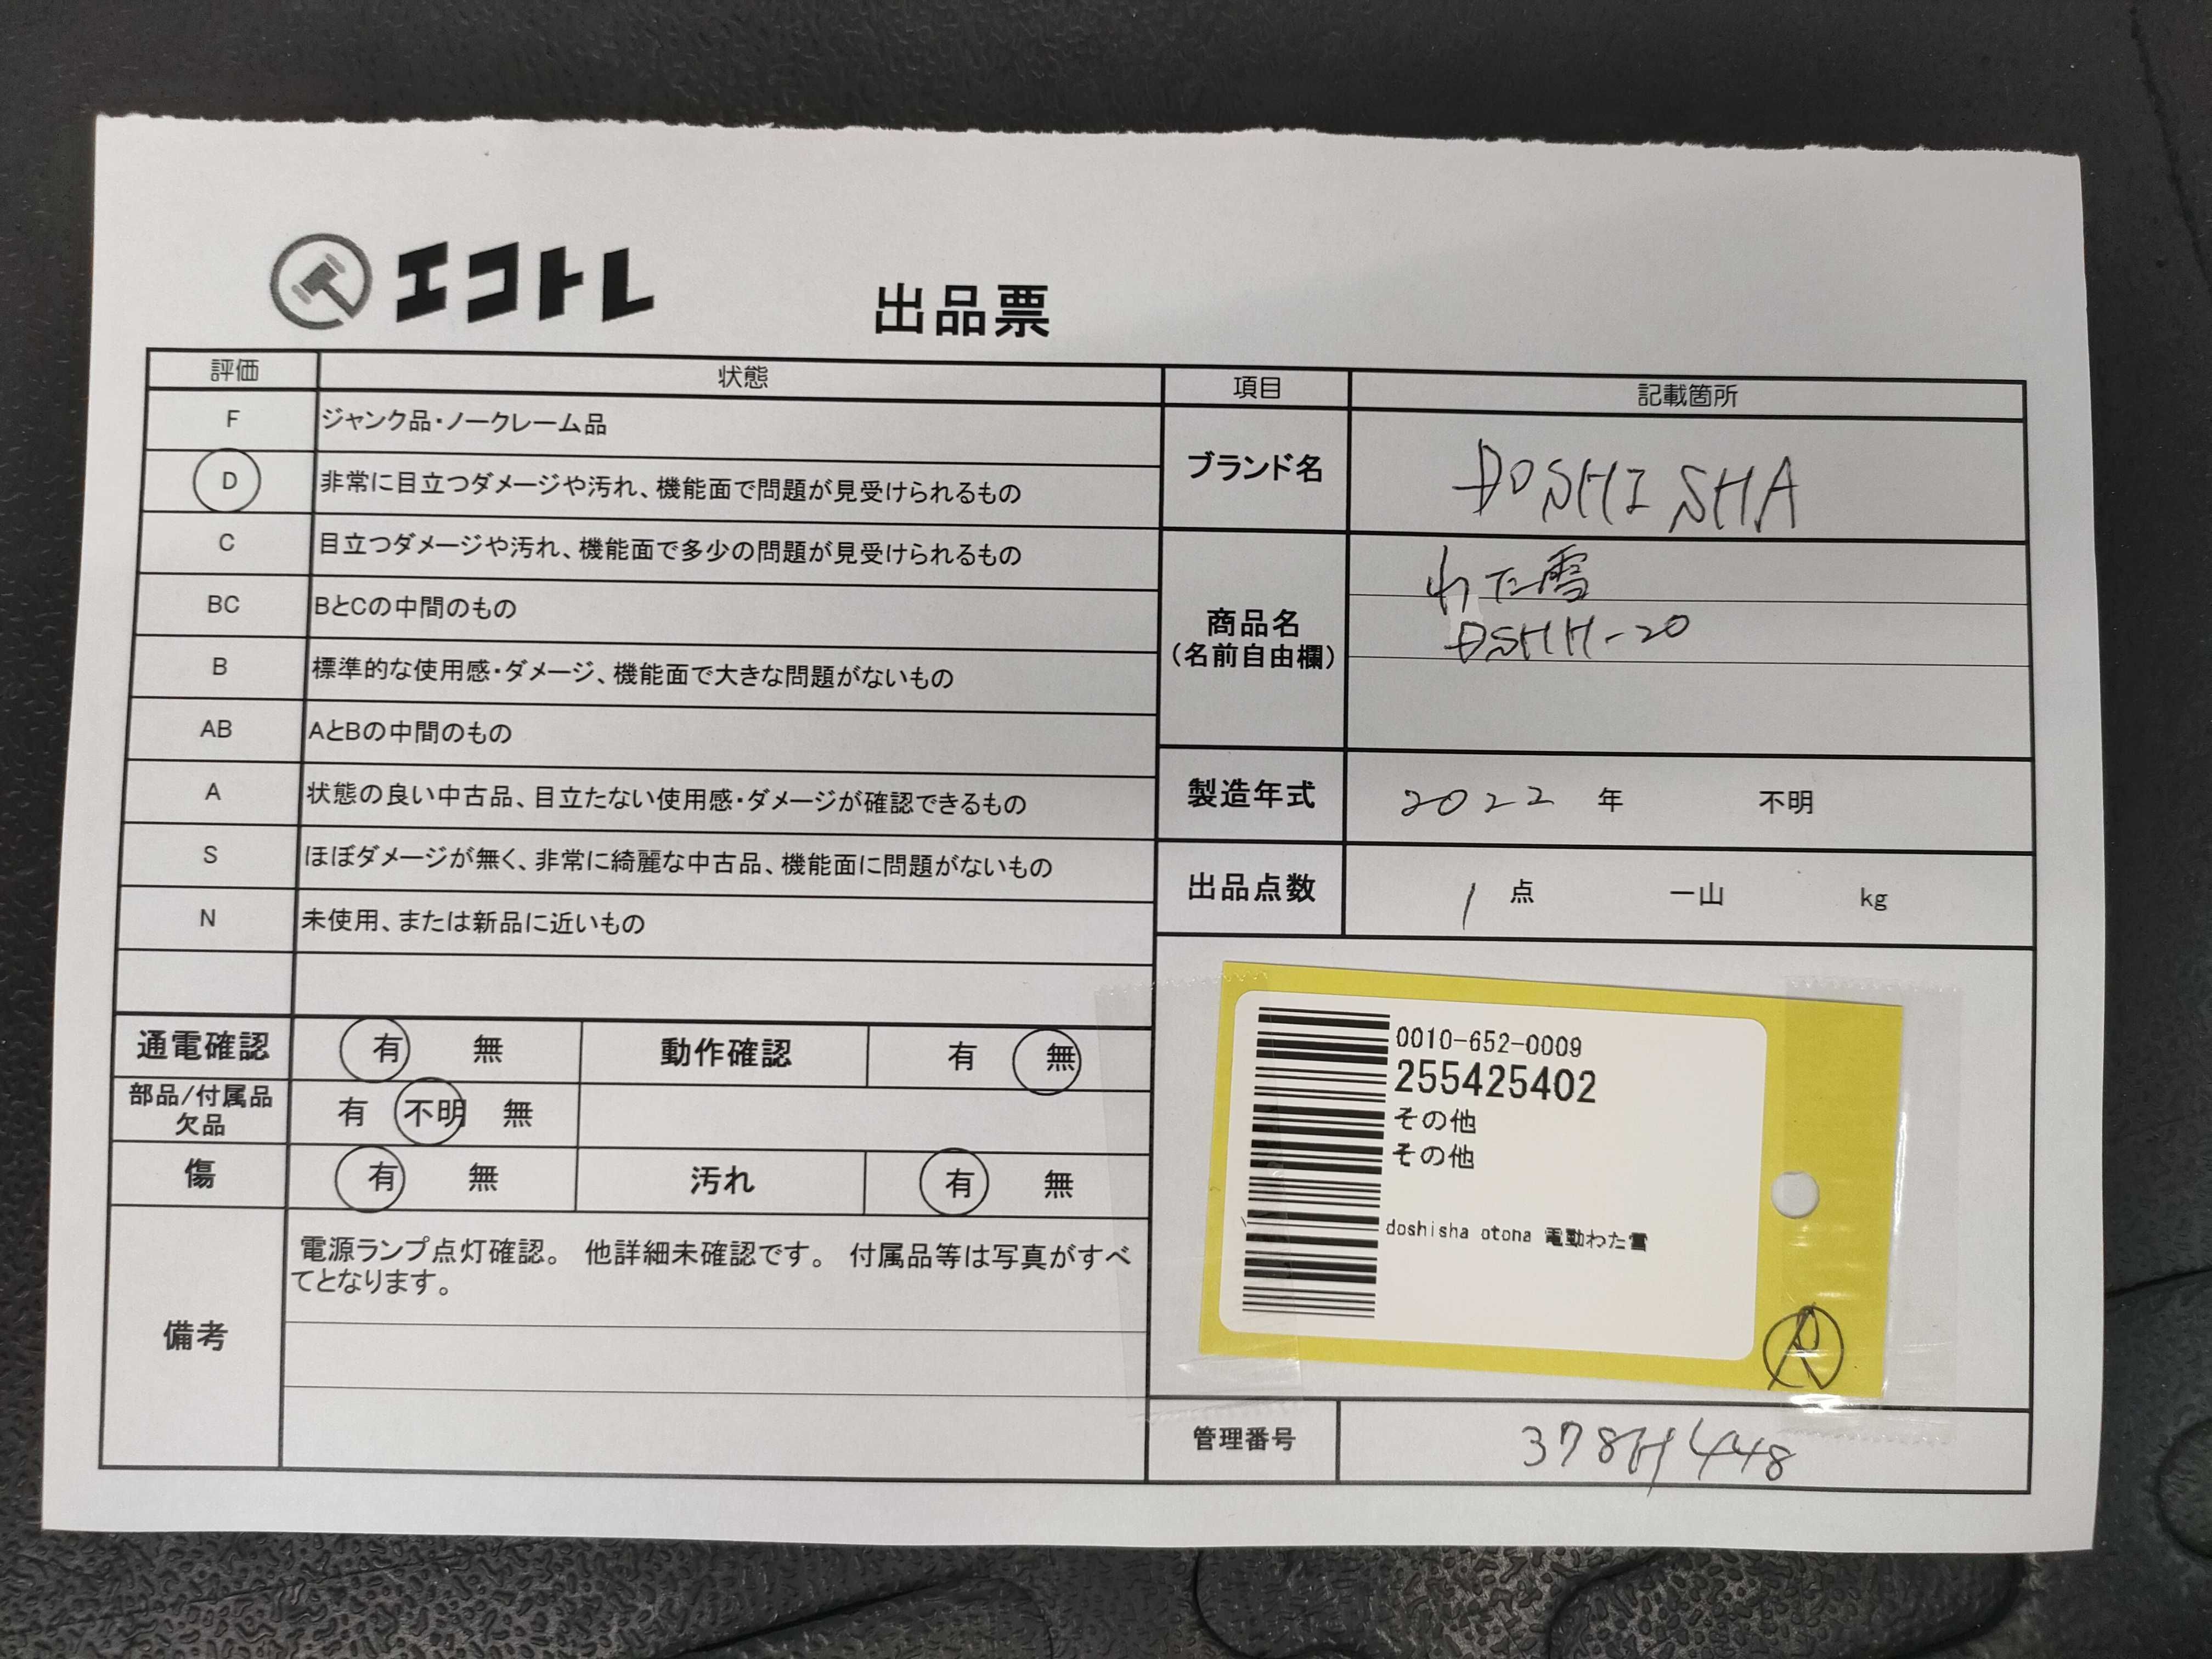 エコトレ
出品票
評価 状態
F ジャンク品・ノークレーム品
D 非常に目立つダメージや汚れ、機能面で問題が見受けられるもの
C 目立つダメージや汚れ、機能面で多少の問題が見受けられるもの
BC BとCの中間のもの
B 標準的な使用感・ダメージ、機能面で大きな問題がないもの
AB AとBの中間のもの
A 状態の良い中古品、目立たない使用感・ダメージが確認できるもの
S ほぼダメージが無く、非常に綺麗な中古品、機能面に問題がないもの
N 未使用、または新品に近いもの
通電確認 有 無 動作確認 有 無
部品/付属品
欠品
有 不明 無
傷 有 無 汚れ 有 無
備考
電源ランプ点灯確認。 他詳細未確認です。 付属品等は写真がすべ
てとなります。
項目 記載箇所
ブランド名 DOSHISHA
商品名
(名前自由欄)
わた雪
DSHH-20
製造年式 2022 年 不明
出品点数 1 点 一山 kg
0010-652-0009
255425402
その他
その他
doshisha otona 電動わた雪
管理番号 378H448